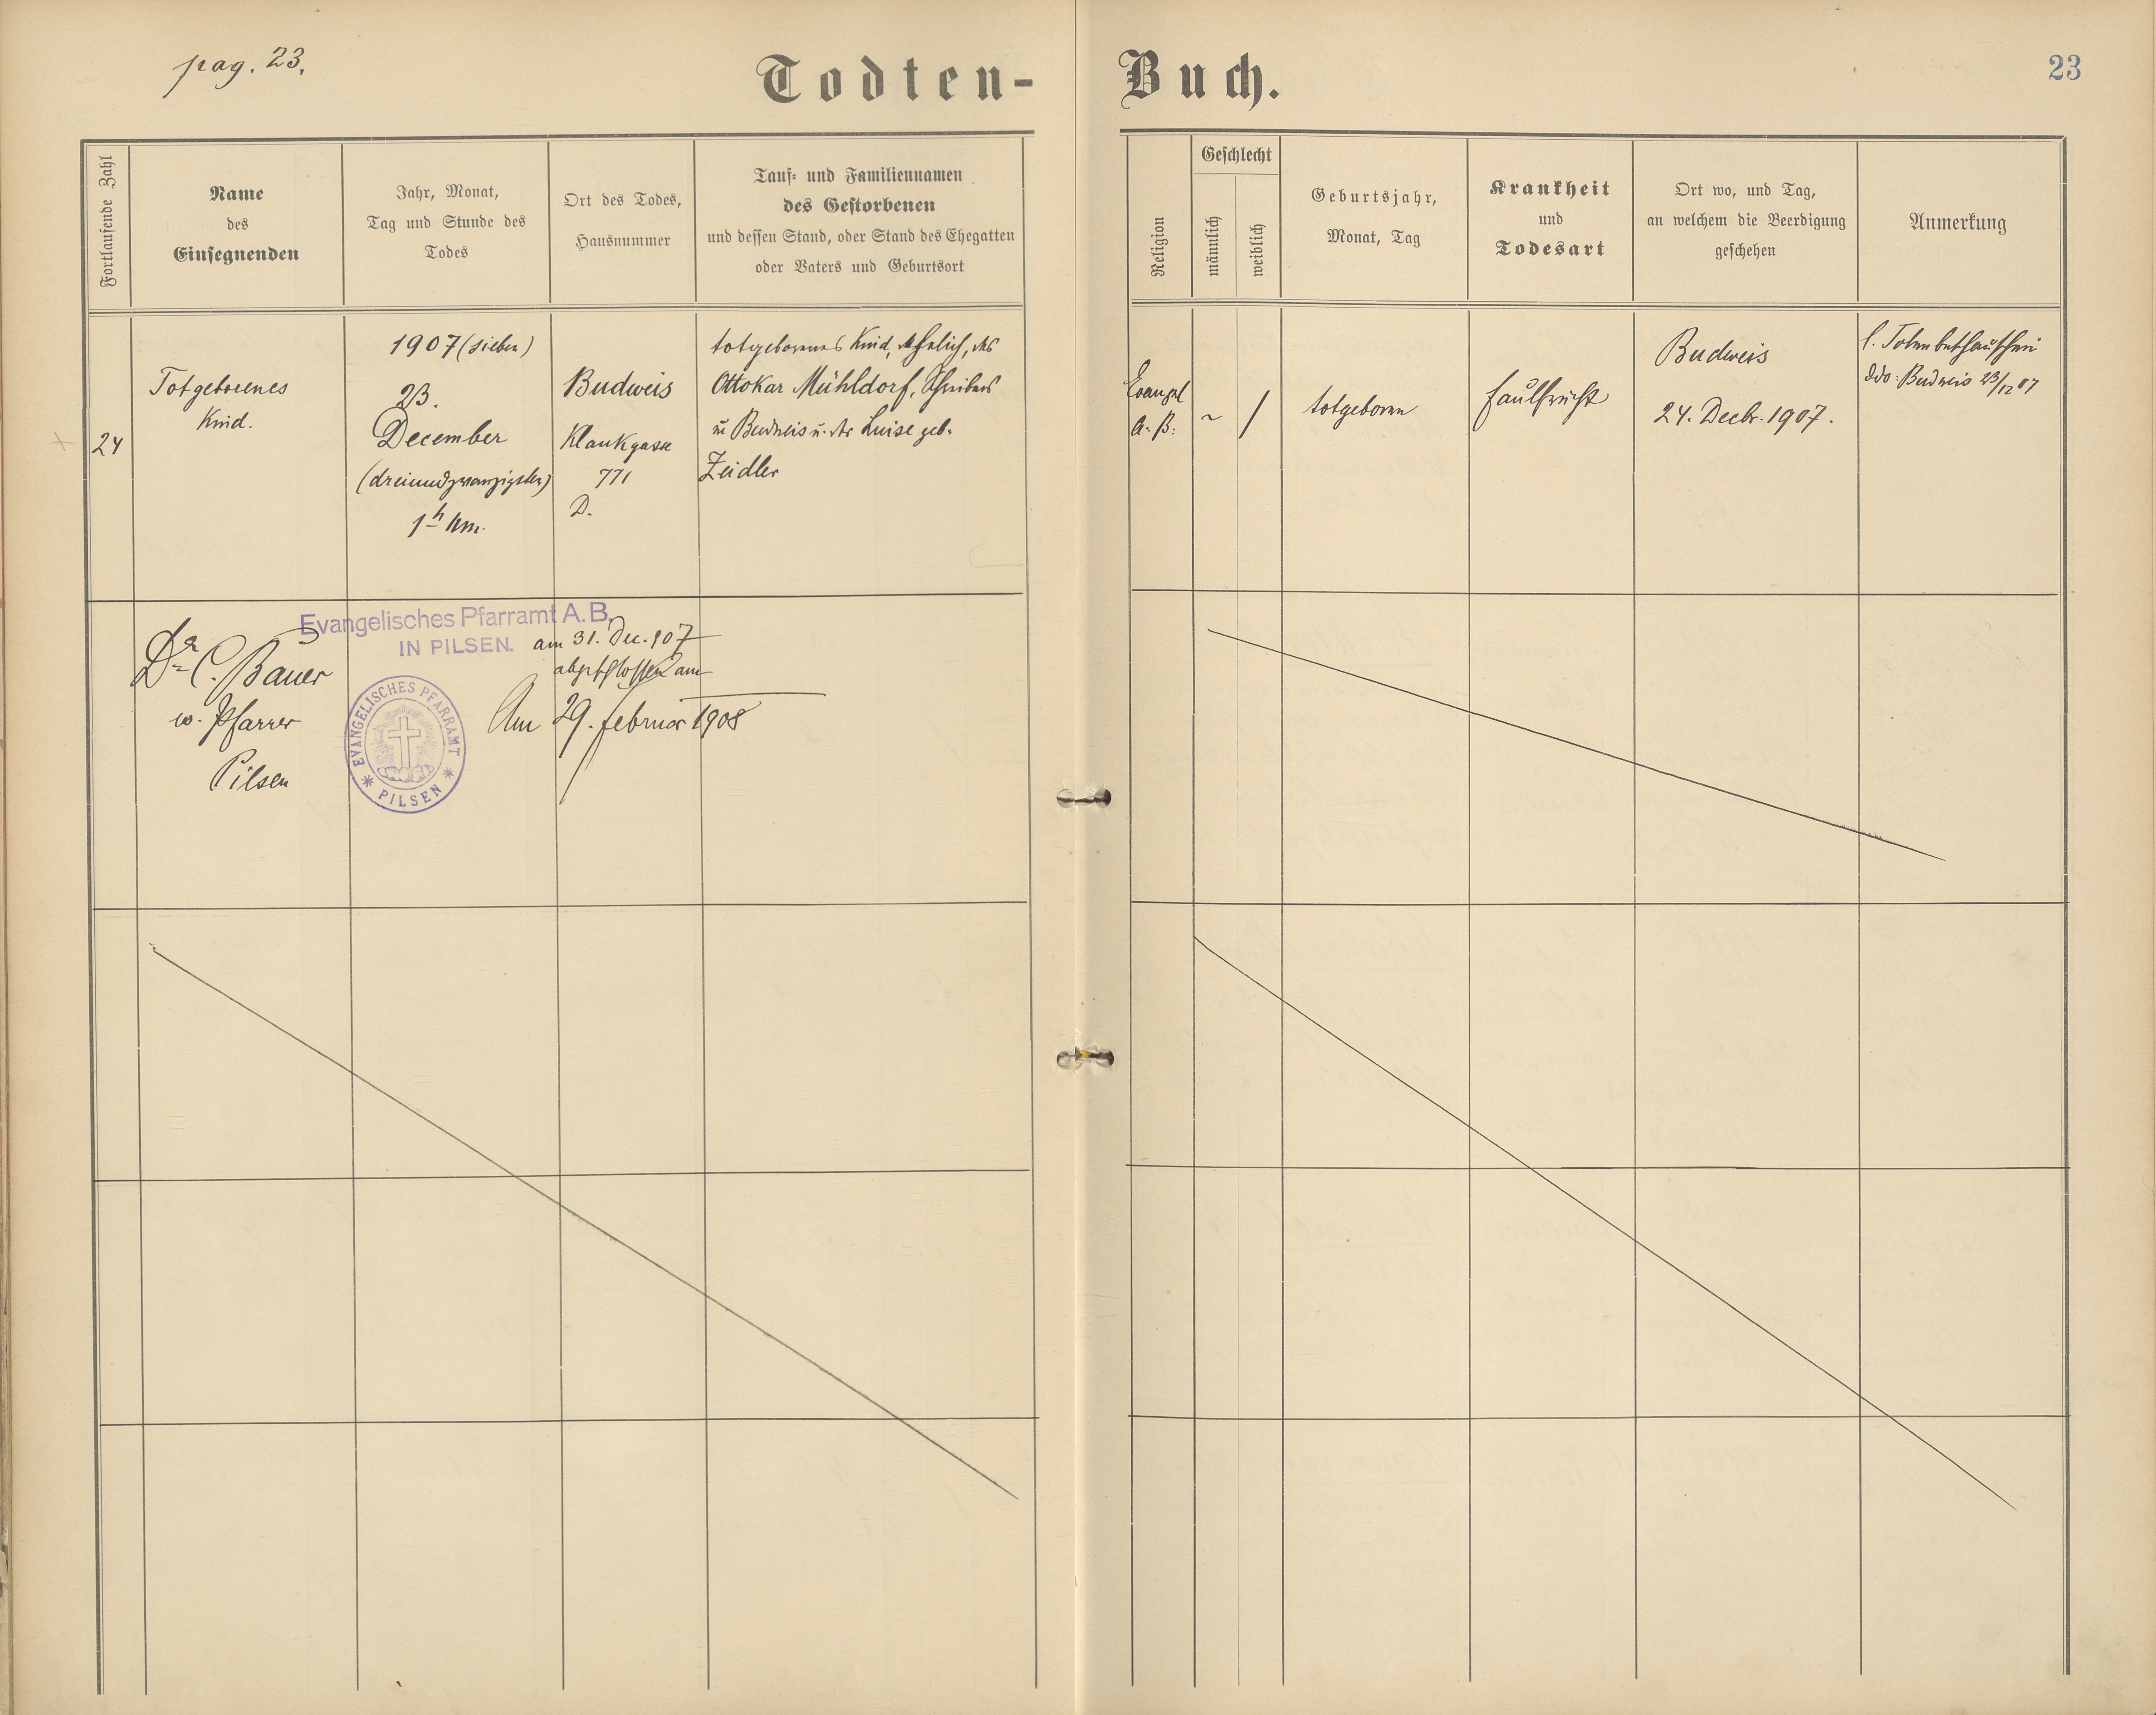 pag. 23.
Todten-Buch.
23
Fortlaufende Zahl
Name
des
Einsegnenden
Jahr, Monat,
Tag und Stunde des
Todes
Ort des Todes,
Hausnummer
Tauf- und Familiennamen
des Gestorbenen
und dessen Stand, oder Stand des Ehegatten
oder Vaters und Geburtsort
Religion
Geschlecht
männlich
weiblich
Geburtsjahr,
Monat, Tag
Krankheit
und
Todesart
Ort wo, und Tag,
an welchem die Beerdigung
geschehen
Anmerkung
24
Totgeborenes
Kind.
1907 (sieben)
23.
December
(dreiundzwanzigsten)
1h Nm.
Budweis
Klaukgasse
771
D.
totgeborenes Kind, ehelich, des
Ottokar Mühldorf, Schreibers
in Budweis u. der Luise geb.
Zeidler
Evangel
A. B.
~
/
totgeboren
Faulfrucht
Budweis
24. Decbr. 1907.
l. Totenbeschauschein
ddo. Budweis 23/12 07
Evangelisches Pfarramt A.B.
IN PILSEN.
am 31. Dec. 907
abgeschlossen am
Am 29. Februar 1908
Dr. C. Bauer
ev. Pfarrer
Pilsen
EVANGELISCHES PFARRAMT
* PILSEN *